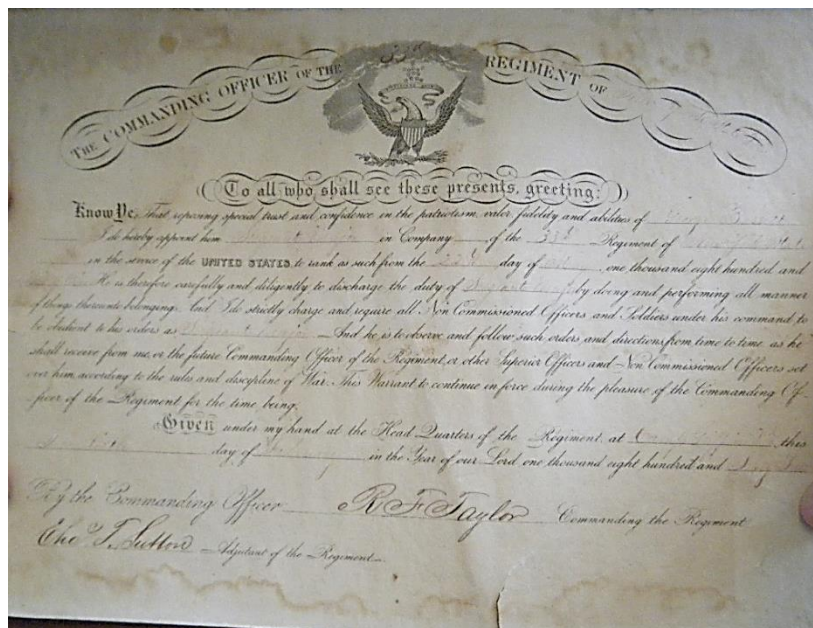 THE COMMANDING OFFICER OF THE 33d REGIMENT OF
To all who shall see these presents, greeting:
Know Ye, That reposing special trust and confidence in the patriotism, valor, fidelity and abilities of
I do hereby appoint him in Company of the 33d Regiment of
in the service of the UNITED STATES, to rank as such from the 22d day of one thousand eight hundred and
He is therefore carefully and diligently to discharge the duty of by doing and performing all manner
of things thereunto belonging. And I do strictly charge and require all Non Commissioned Officers and Soldiers under his command to
be obedient to his orders as And he is to observe and follow such orders and directions from time to time as he
shall receive from me, or the future Commanding Officer of the Regiment, or other Superior Officers and Non Commissioned Officers set
over him, according to the rules and discipline of War. This Warrant to continue in force during the pleasure of the Commanding Of-
ficer of the Regiment for the time being.
Given under my hand at the Head Quarters of the Regiment, at this
day of in the Year of our Lord one thousand eight hundred and
By the Commanding Officer R F Taylor Commanding the Regiment
Cha. T. Sutton Adjutant of the Regiment.